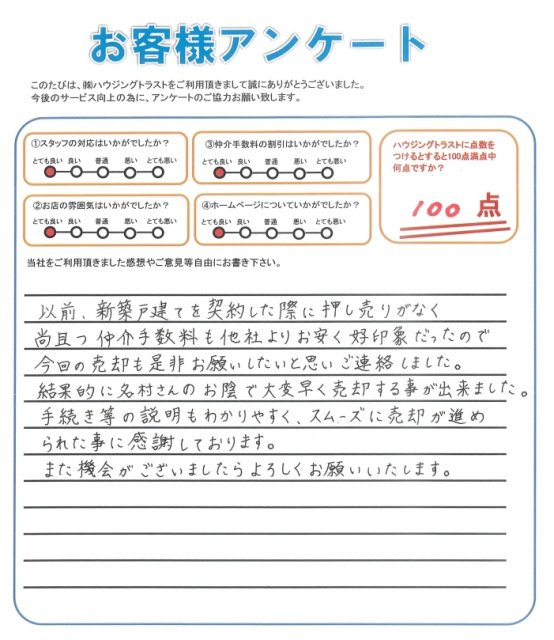 お客様アンケート
このたびは、㈱ハウジングトラストをご利用頂きまして誠にありがとうございました。
今後のサービス向上の為に、アンケートのご協力お願い致します。
①スタッフの対応はいかがでしたか？
とても良い 良い 普通 悪い とても悪い
③仲介手数料の割引はいかがでしたか？
とても良い 良い 普通 悪い とても悪い
②お店の雰囲気はいかがでしたか？
とても良い 良い 普通 悪い とても悪い
④ホームページについていかがでしたか？
とても良い 良い 普通 悪い とても悪い
ハウジングトラストに点数を
つけるとすると100点満点中
何点ですか？
100 点
当社をご利用頂きました感想やご意見等自由にお書き下さい。
以前、新築戸建てを契約した際に押し売りがなく
尚且つ仲介手数料も他社よりお安く好印象だったので
今回の売却も是非お願いしたいと思いご連絡しました。
結果的に名村さんのお陰で大変早く売却する事が出来ました。
手続き等の説明もわかりやすく、スムーズに売却が進め
られた事に感謝しております。
また機会がございましたらよろしくお願いいたします。